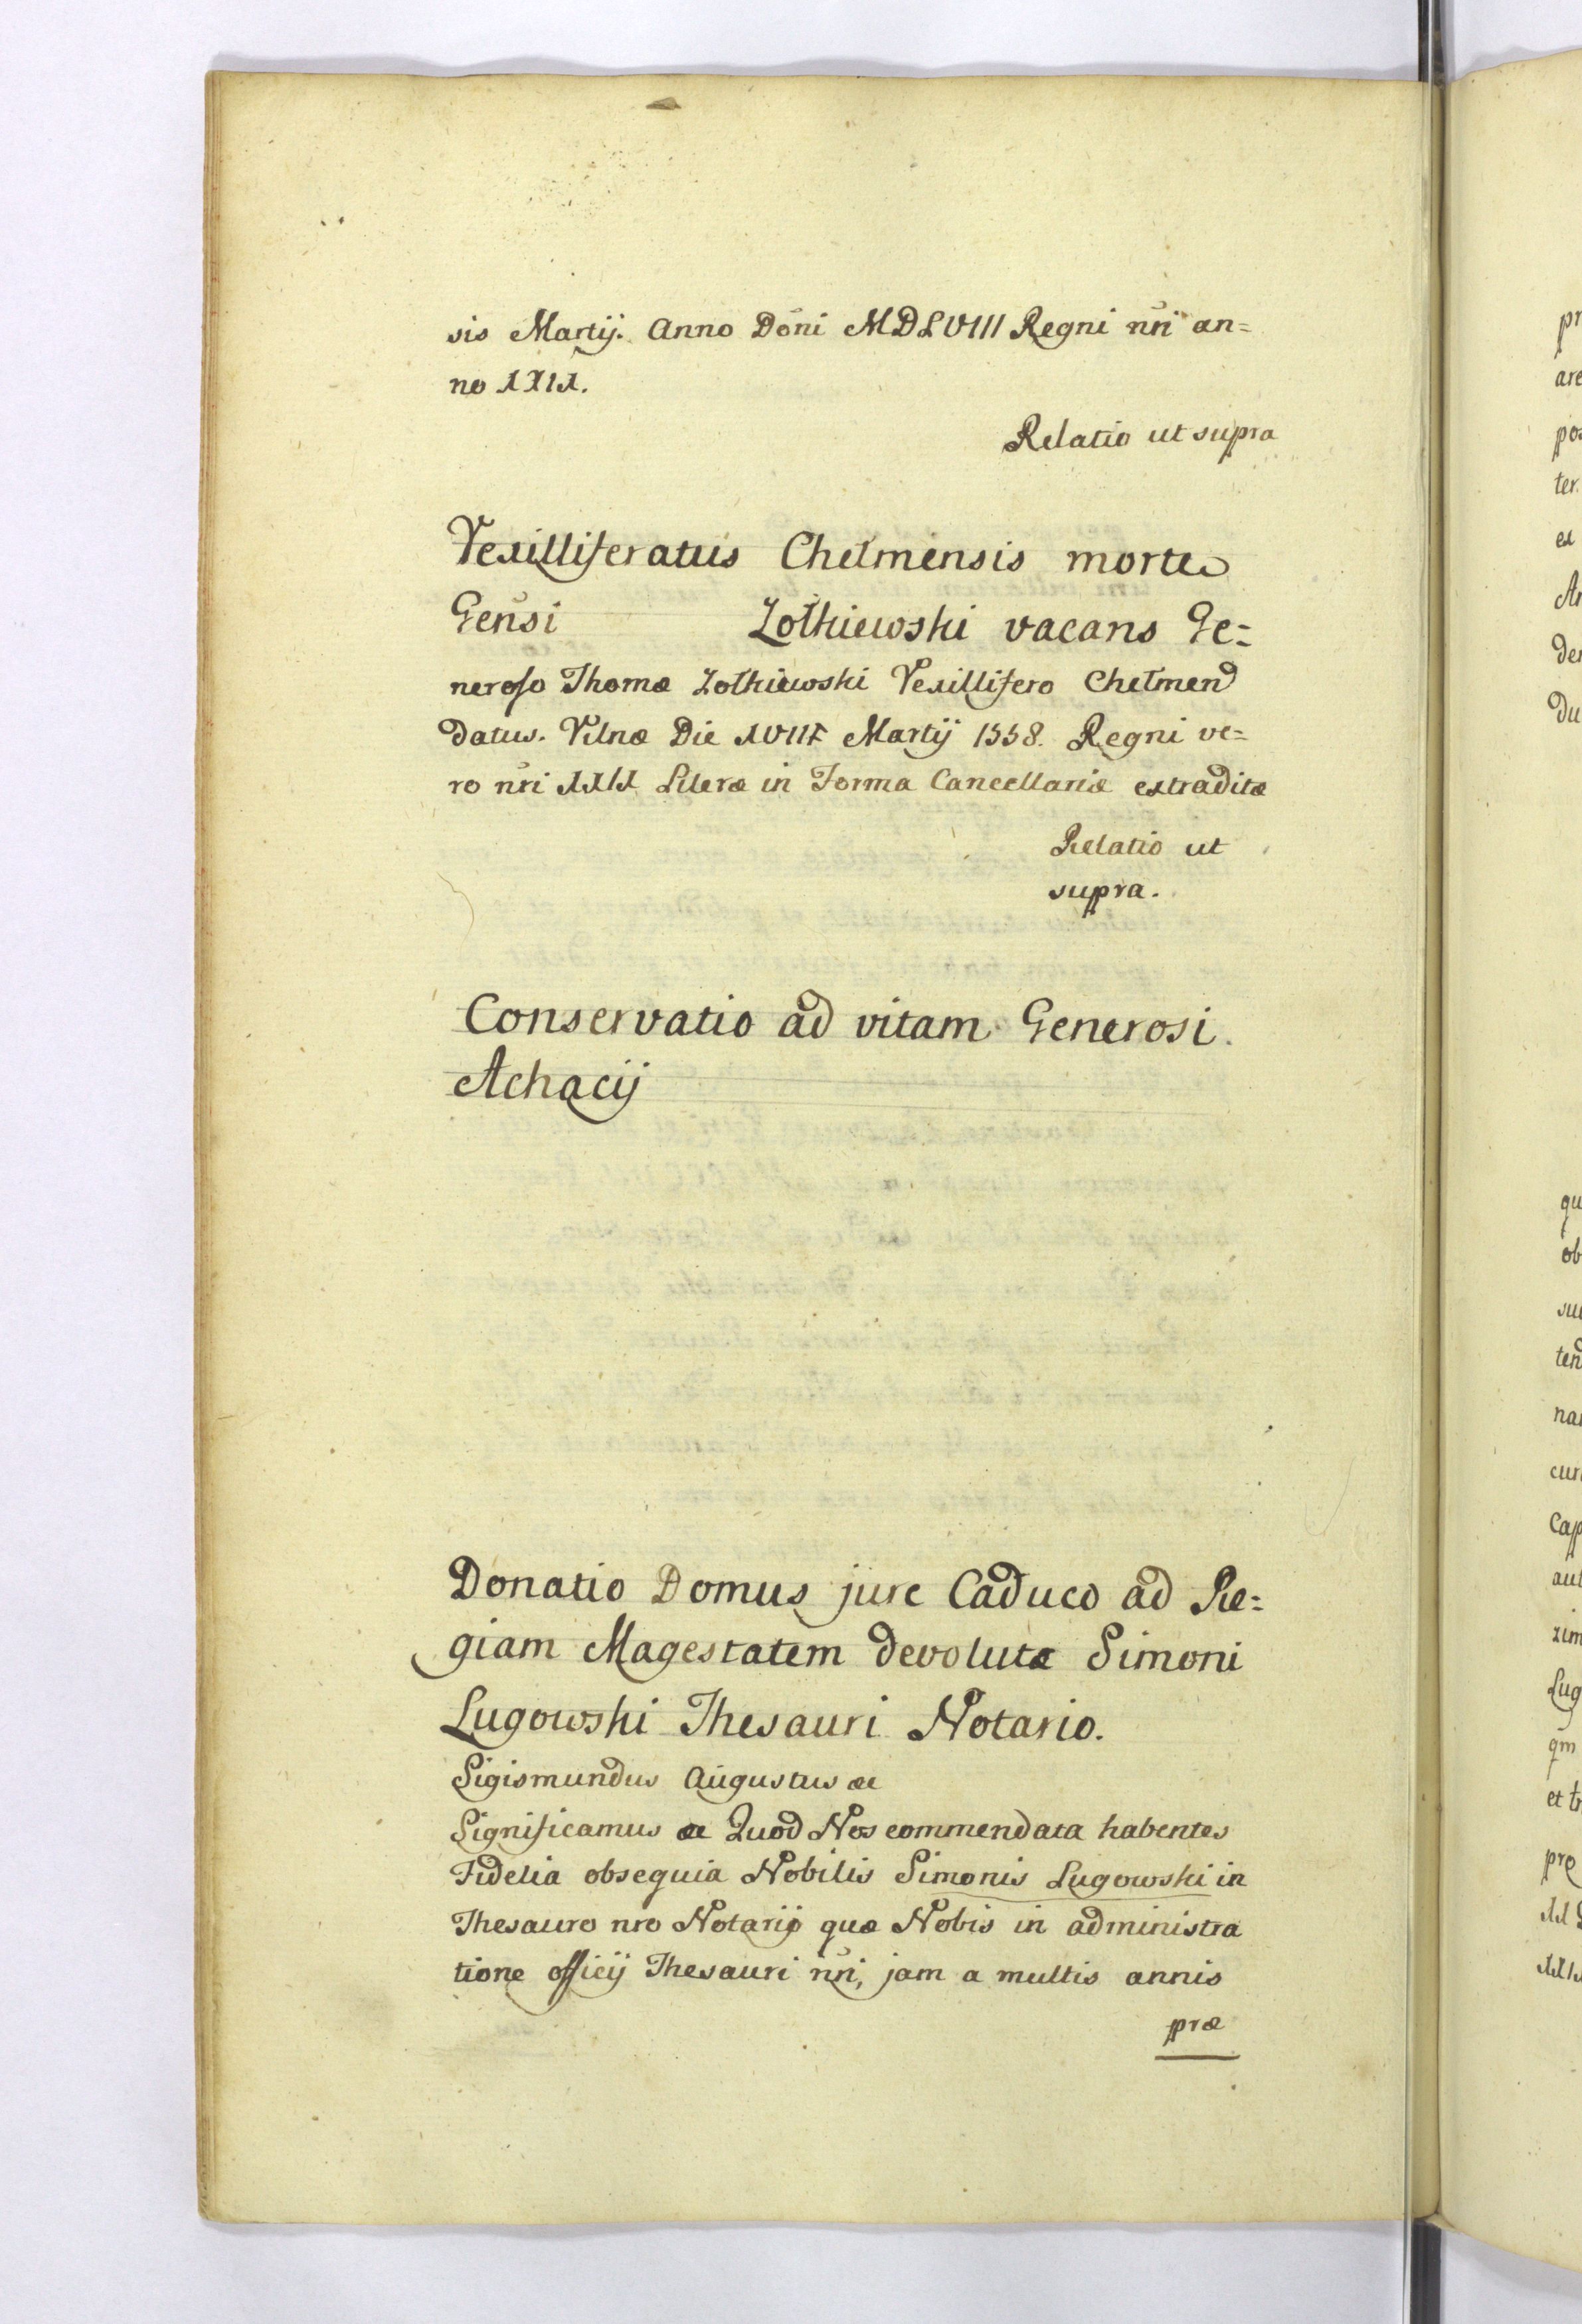 sis Martij. Anno Dōni MDLVIII Regni nr̄i an=
no XXIX.
Relatio ut supra
Vexilliferatus Chełmensis morte
Gen̄si Zołkiewski vacans Ge=
neroso Thomæ Zołkiewski Vexillifero Chełmen
datus. Vilnæ Die XVIII Martij 1558. Regni ve=
ro nr̄i XXIX Literæ in Forma Cancellariæ extraditæ
Relatio ut
supra.
Conservatio ad vitam Generosi.
Achacij
Donatio Domus jure Caduco ad Re=
giam Magestatem devolutæ Simoni
Lugowski Thesauri Notario.
Sigismundus Augustus æ
Significamus æ Quod Nos commendata habentes
Fidelia obsequia Nobilis Simonis Lugowski in
Thesauro nro Notarij quæ Nobis in administra
tione officij Thesauri nr̄i, jam a multis annis
præ